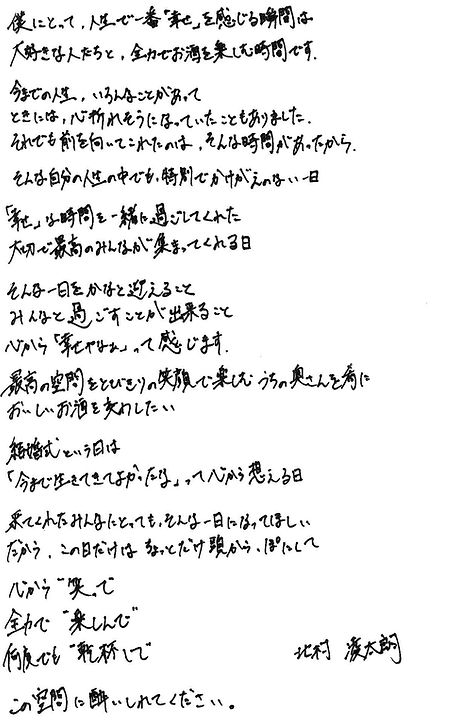 僕にとって、人生で一番“幸せ”を感じる瞬間は
大好きな人たちと、全力でお酒を楽しむ時間です.
今までの人生、いろんなことがあって
ときには、心折れそうになっていたこともありました.
それでも前を向いてこれたのは、そんな時間があったから.
そんな自分の人生の中でも、特別でかけがえのない一日
「幸せ」な時間を一緒に過ごしてくれた
大切で最高のみんなが集まってくれる日
そんな一日をかなと迎えること
みんなと過ごすことが出来ること
心から「幸せやなぁ」って感じます.
最高の空間をとびきりの笑顔で楽しむうちの奥さんを肴に
おいしいお酒を交わしたい
結婚式という日は
「今まで生きてきてよかったな」って心から想える日
来てくれたみんなにとっても、そんな一日になってほしい
だから、この日だけはちょっとだけ頭からっぽにして
心から“笑って”
全力で“楽しんで”
何度でも“乾杯して”
北村 凌太朗
この空間に酔いしれてください。